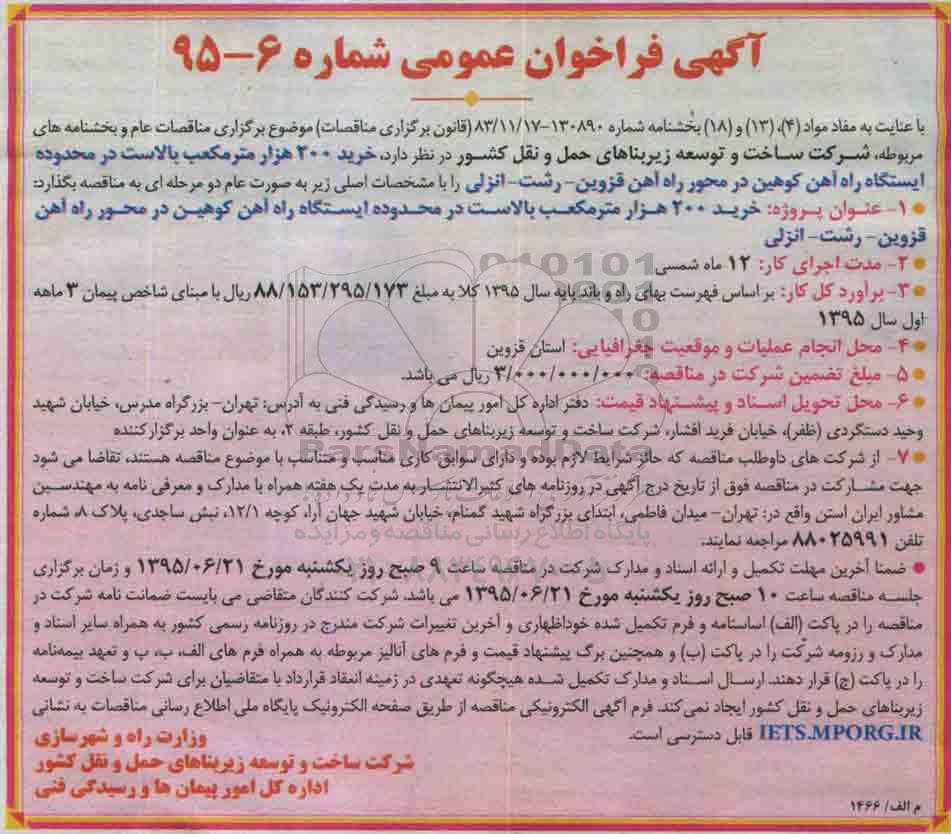 آگهی فراخوان عمومی شماره ۶-۹۵
با عنایت به مفاد مواد (۴)، (۱۳) و (۱۸) بخشنامه شماره ۱۳۰۸۹۰-۸۳/۱۱/۱۷ (قانون برگزاری مناقصات) موضوع برگزاری مناقصات عام و بخشنامه های
مربوطه، شرکت ساخت و توسعه زیربناهای حمل و نقل کشور در نظر دارد، خرید ۲۰۰ هزار مترمکعب بالاست در محدوده
ایستگاه راه آهن کوهین در محور راه آهن قزوین- رشت- انزلی را با مشخصات اصلی زیر به صورت عام دو مرحله ای به مناقصه بگذارد:
۱- عنوان پروژه: خرید ۲۰۰ هزار مترمکعب بالاست در محدوده ایستگاه راه آهن کوهین در محور راه آهن
قزوین- رشت- انزلی
۲- مدت اجرای کار: ۱۲ ماه شمسی
۳- برآورد کل کار: بر اساس فهرست بهای راه و باند پایه سال ۱۳۹۵ کلا به مبلغ ۸۸/۱۵۳/۲۹۵/۱۷۳ ریال با مبنای شاخص پیمان ۳ ماهه
اول سال ۱۳۹۵
۴- محل انجام عملیات و موقعیت جغرافیایی: استان قزوین
۵- مبلغ تضمین شرکت در مناقصه: ۳/۰۰۰/۰۰۰/۰۰۰ ریال می باشد.
۶- محل تحویل اسناد و پیشنهاد قیمت: دفتر اداره کل امور پیمان ها و رسیدگی فنی به آدرس: تهران- بزرگراه مدرس، خیابان شهید
وحید دستگردی (ظفر)، خیابان فرید افشار، شرکت ساخت و توسعه زیربناهای حمل و نقل کشور، طبقه ۲، به عنوان واحد برگزارکننده
۷- از شرکت های داوطلب مناقصه که حائز شرایط لازم بوده و دارای سوابق کاری مناسب و متناسب با موضوع مناقصه هستند، تقاضا می شود
جهت مشارکت در مناقصه فوق از تاریخ درج آگهی در روزنامه های کثیرالانتشار به مدت یک هفته همراه با مدارک و معرفی نامه به مهندسین
مشاور ایران استن واقع در: تهران- میدان فاطمی، ابتدای بزرگراه شهید گمنام، خیابان شهید جهان آرا، کوچه ۱۲/۱، نبش ساجدی، پلاک ۸، شماره
تلفن ۸۸۰۲۵۹۹۱ مراجعه نمایند.
ضمنا آخرین مهلت تکمیل و ارائه اسناد و مدارک شرکت در مناقصه ساعت ۹ صبح روز یکشنبه مورخ ۱۳۹۵/۰۶/۲۱ و زمان برگزاری
جلسه مناقصه ساعت ۱۰ صبح روز یکشنبه مورخ ۱۳۹۵/۰۶/۲۱ می باشد. شرکت کنندگان متقاضی می بایست ضمانت نامه شرکت در
مناقصه را در پاکت (الف) اساسنامه و فرم تکمیل شده خوداظهاری و آخرین تغییرات شرکت مندرج در روزنامه رسمی کشور به همراه سایر اسناد و
مدارک و رزومه شرکت را در پاکت (ب) و همچنین برگ پیشنهاد قیمت و فرم های آنالیز مربوطه به همراه فرم های الف، ب، پ و تعهد بیمه‌نامه
را در پاکت (ج) قرار دهند. ارسال اسناد و مدارک تکمیل شده هیچگونه تعهدی در زمینه انعقاد قرارداد با متقاضیان برای شرکت ساخت و توسعه
زیربناهای حمل و نقل کشور ایجاد نمی کند. فرم آگهی الکترونیکی مناقصه از طریق صفحه الکترونیک پایگاه ملی اطلاع رسانی مناقصات به نشانی
IETS.MPORG.IR قابل دسترسی است.
وزارت راه و شهرسازی
شرکت ساخت و توسعه زیربناهای حمل و نقل کشور
اداره کل امور پیمان ها و رسیدگی فنی
م الف/ ۱۴۶۶
ParsNamadData
پایگاه اطلاع رسانی مناقصه و مزایده